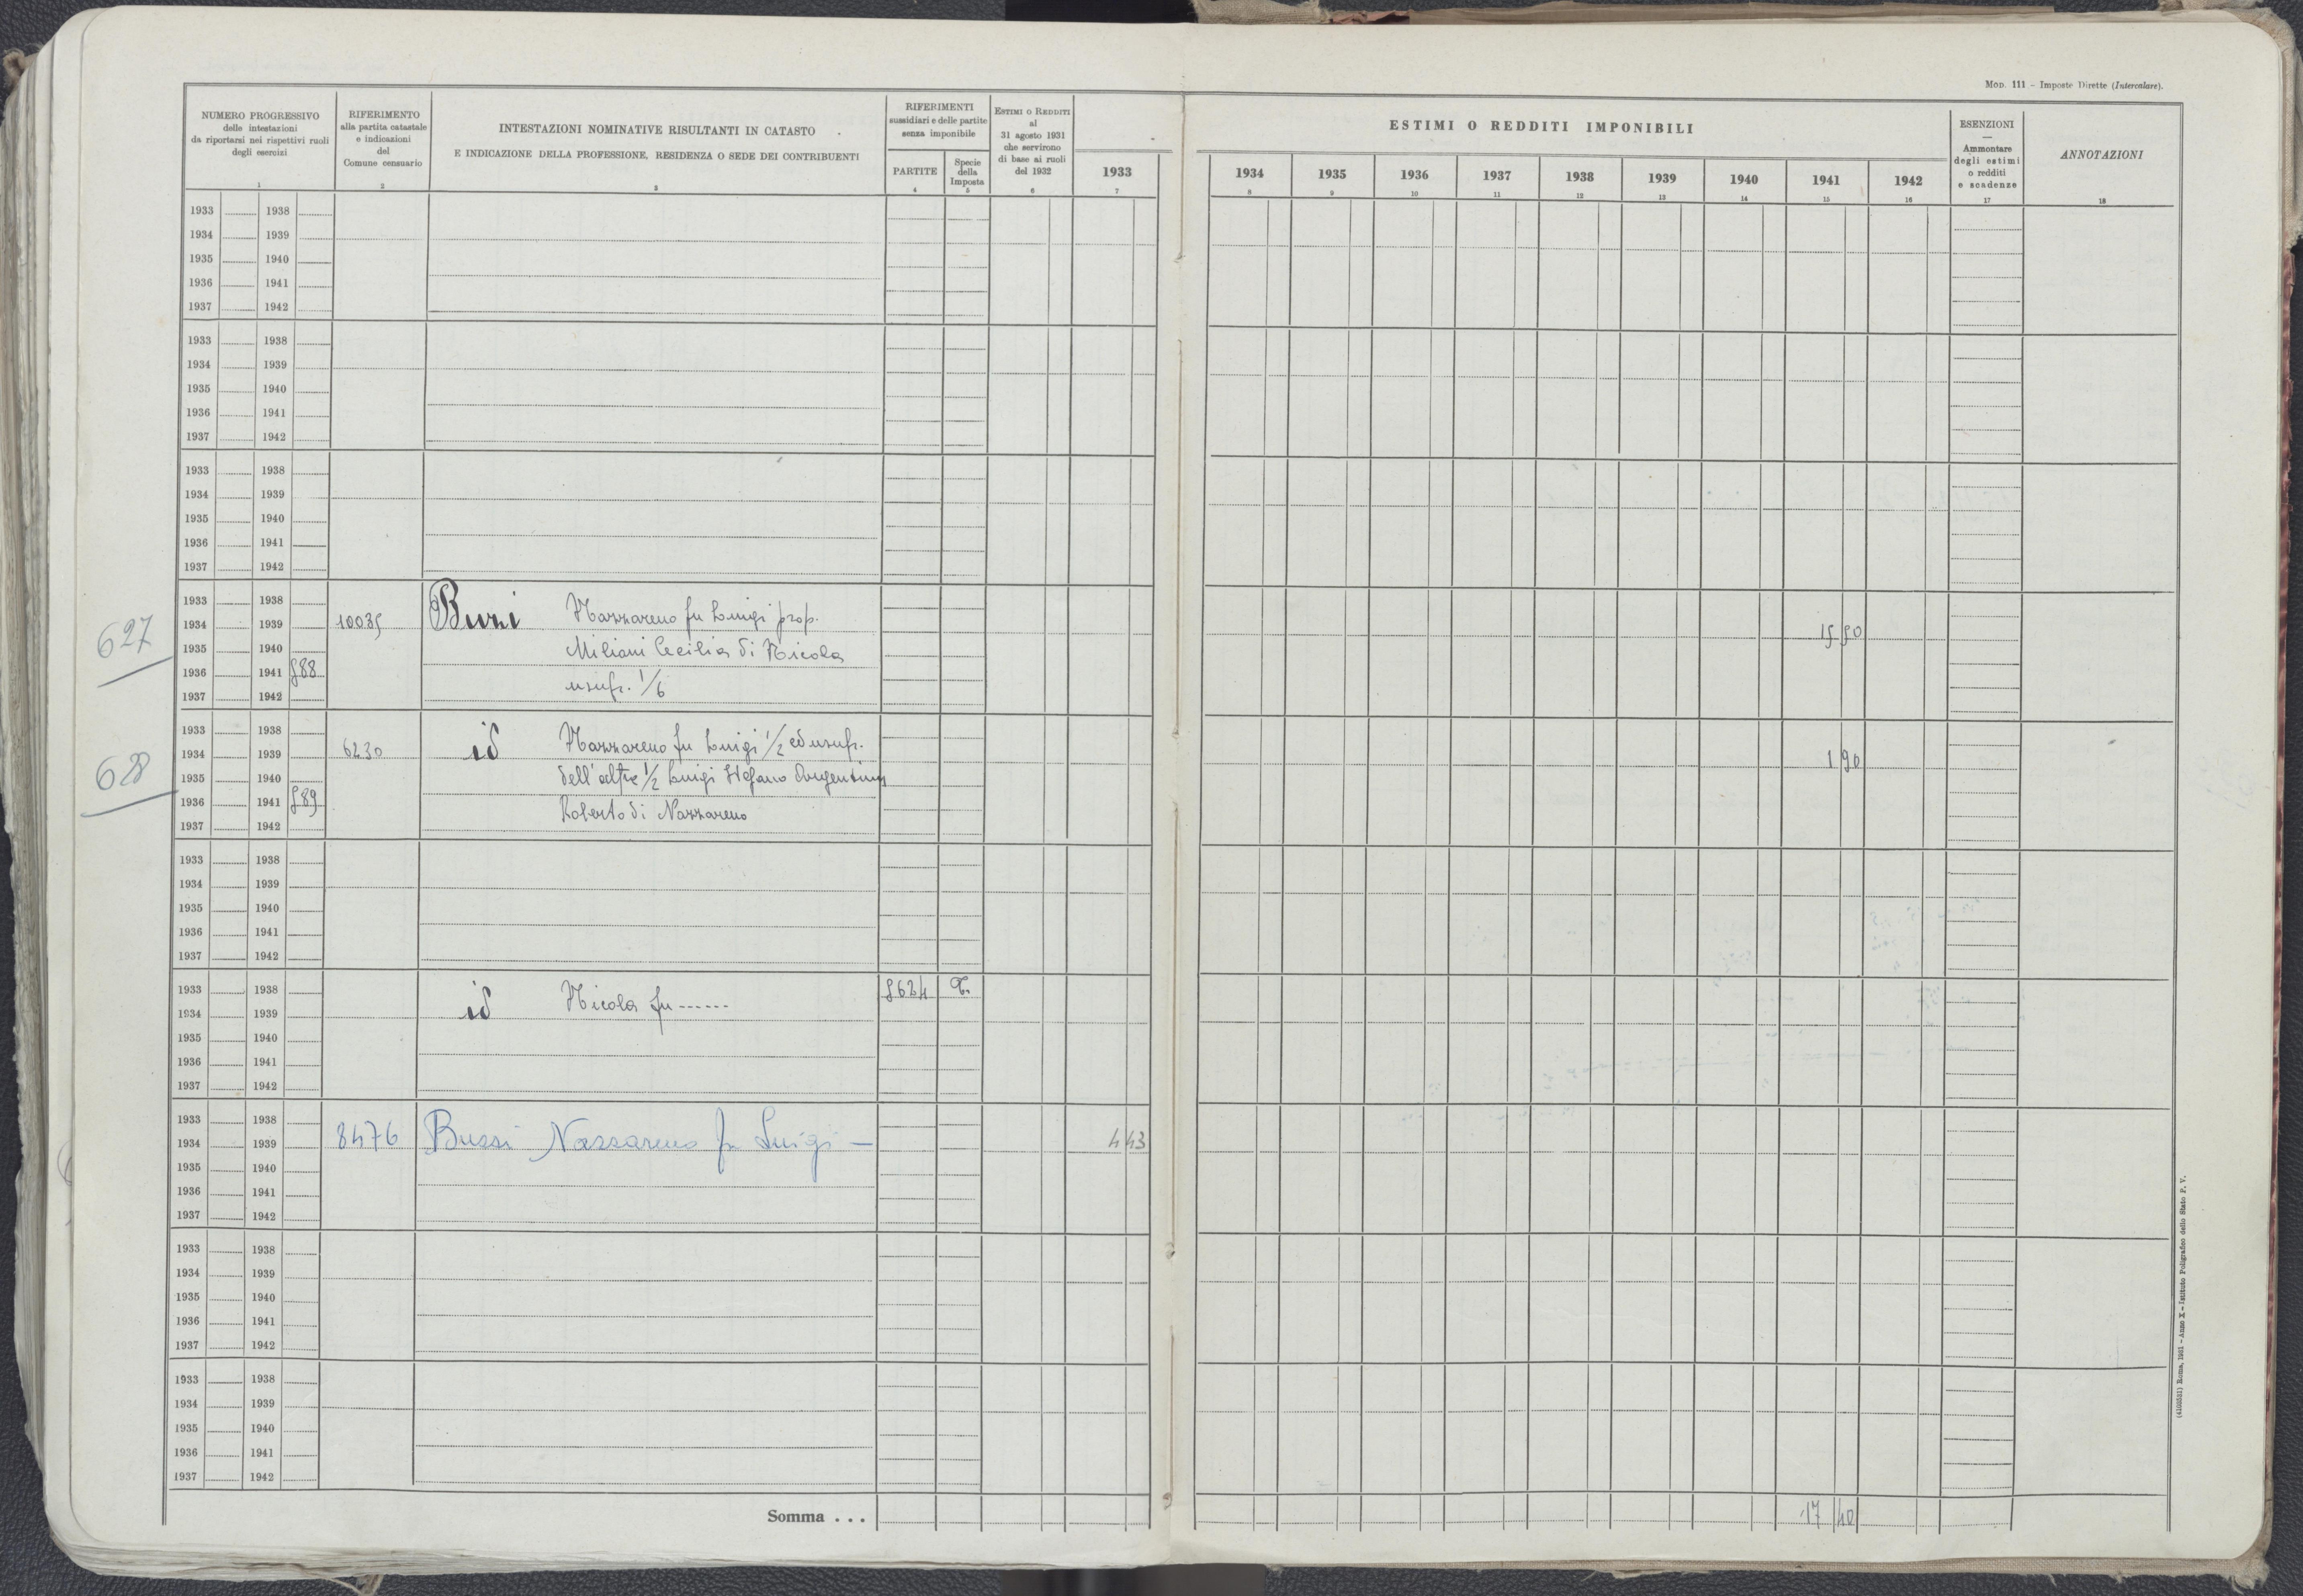 Mod. 111 - Imposte Dirette (Intercalare).
NUMERO PROGRESSIVO
delle intestazioni
da riportarsi nei rispettivi ruoli
degli esercizi
1
RIFERIMENTO
alla partita catastale
e indicazioni
del
Comune censuario
2
INTESTAZIONI NOMINATIVE RISULTANTI IN CATASTO
E INDICAZIONE DELLA PROFESSIONE, RESIDENZA O SEDE DEI CONTRIBUENTI
3
RIFERIMENTI
sussidiari e delle partite
senza imponibile
PARTITE
4
Specie
della
Imposta
5
ESTIMI O REDDITI
al
31 agosto 1931
che servirono
di base ai ruoli
del 1932
6
1933
7
ESTIMI O REDDITI IMPONIBILI
1934 1935 1936 1937 1938 1939 1940 1941 1942
8 9 10 11 12 13 14 15 16
ESENZIONI
—
Ammontare
degli estimi
o redditi
e scadenze
17
ANNOTAZIONI
18
1933 1938
1934 1939
1935 1940
1936 1941
1937 1942
1933 1938
1934 1939
1935 1940
1936 1941
1937 1942
1933 1938
1934 1939
1935 1940
1936 1941
1937 1942
1933 1938
627 1934 1939 10035 Buzzi Nazzareno fu Luigi prop. 15 50
1935 1940 Miliani Cecilia di Nicola
1936 1941 588
1937 1942 usufr. 1/6
1933 1938
628 1934 1939 6230 id Nazzareno fu Luigi 1/2 ed usufr. 1 90
1935 1940 dell'altra 1/2 Luigi Stefano Argentina
1936 1941 589 Roberto di Nazzareno
1937 1942
1933 1938
1934 1939
1935 1940
1936 1941
1937 1942
1933 1938 5624
1934 1939 id Nicola fu ------
1935 1940
1936 1941
1937 1942
1933 1938
1934 1939 8476 Buzzi Nazzareno fu Luigi — 4 43
1935 1940
1936 1941
1937 1942
1933 1938
1934 1939
1935 1940
1936 1941
1937 1942
1933 1938
1934 1939
1935 1940
1936 1941
1937 1942
Somma . . . 17 40
Roma, 1931 - Anno X - Istituto Poligrafico dello Stato P. V.